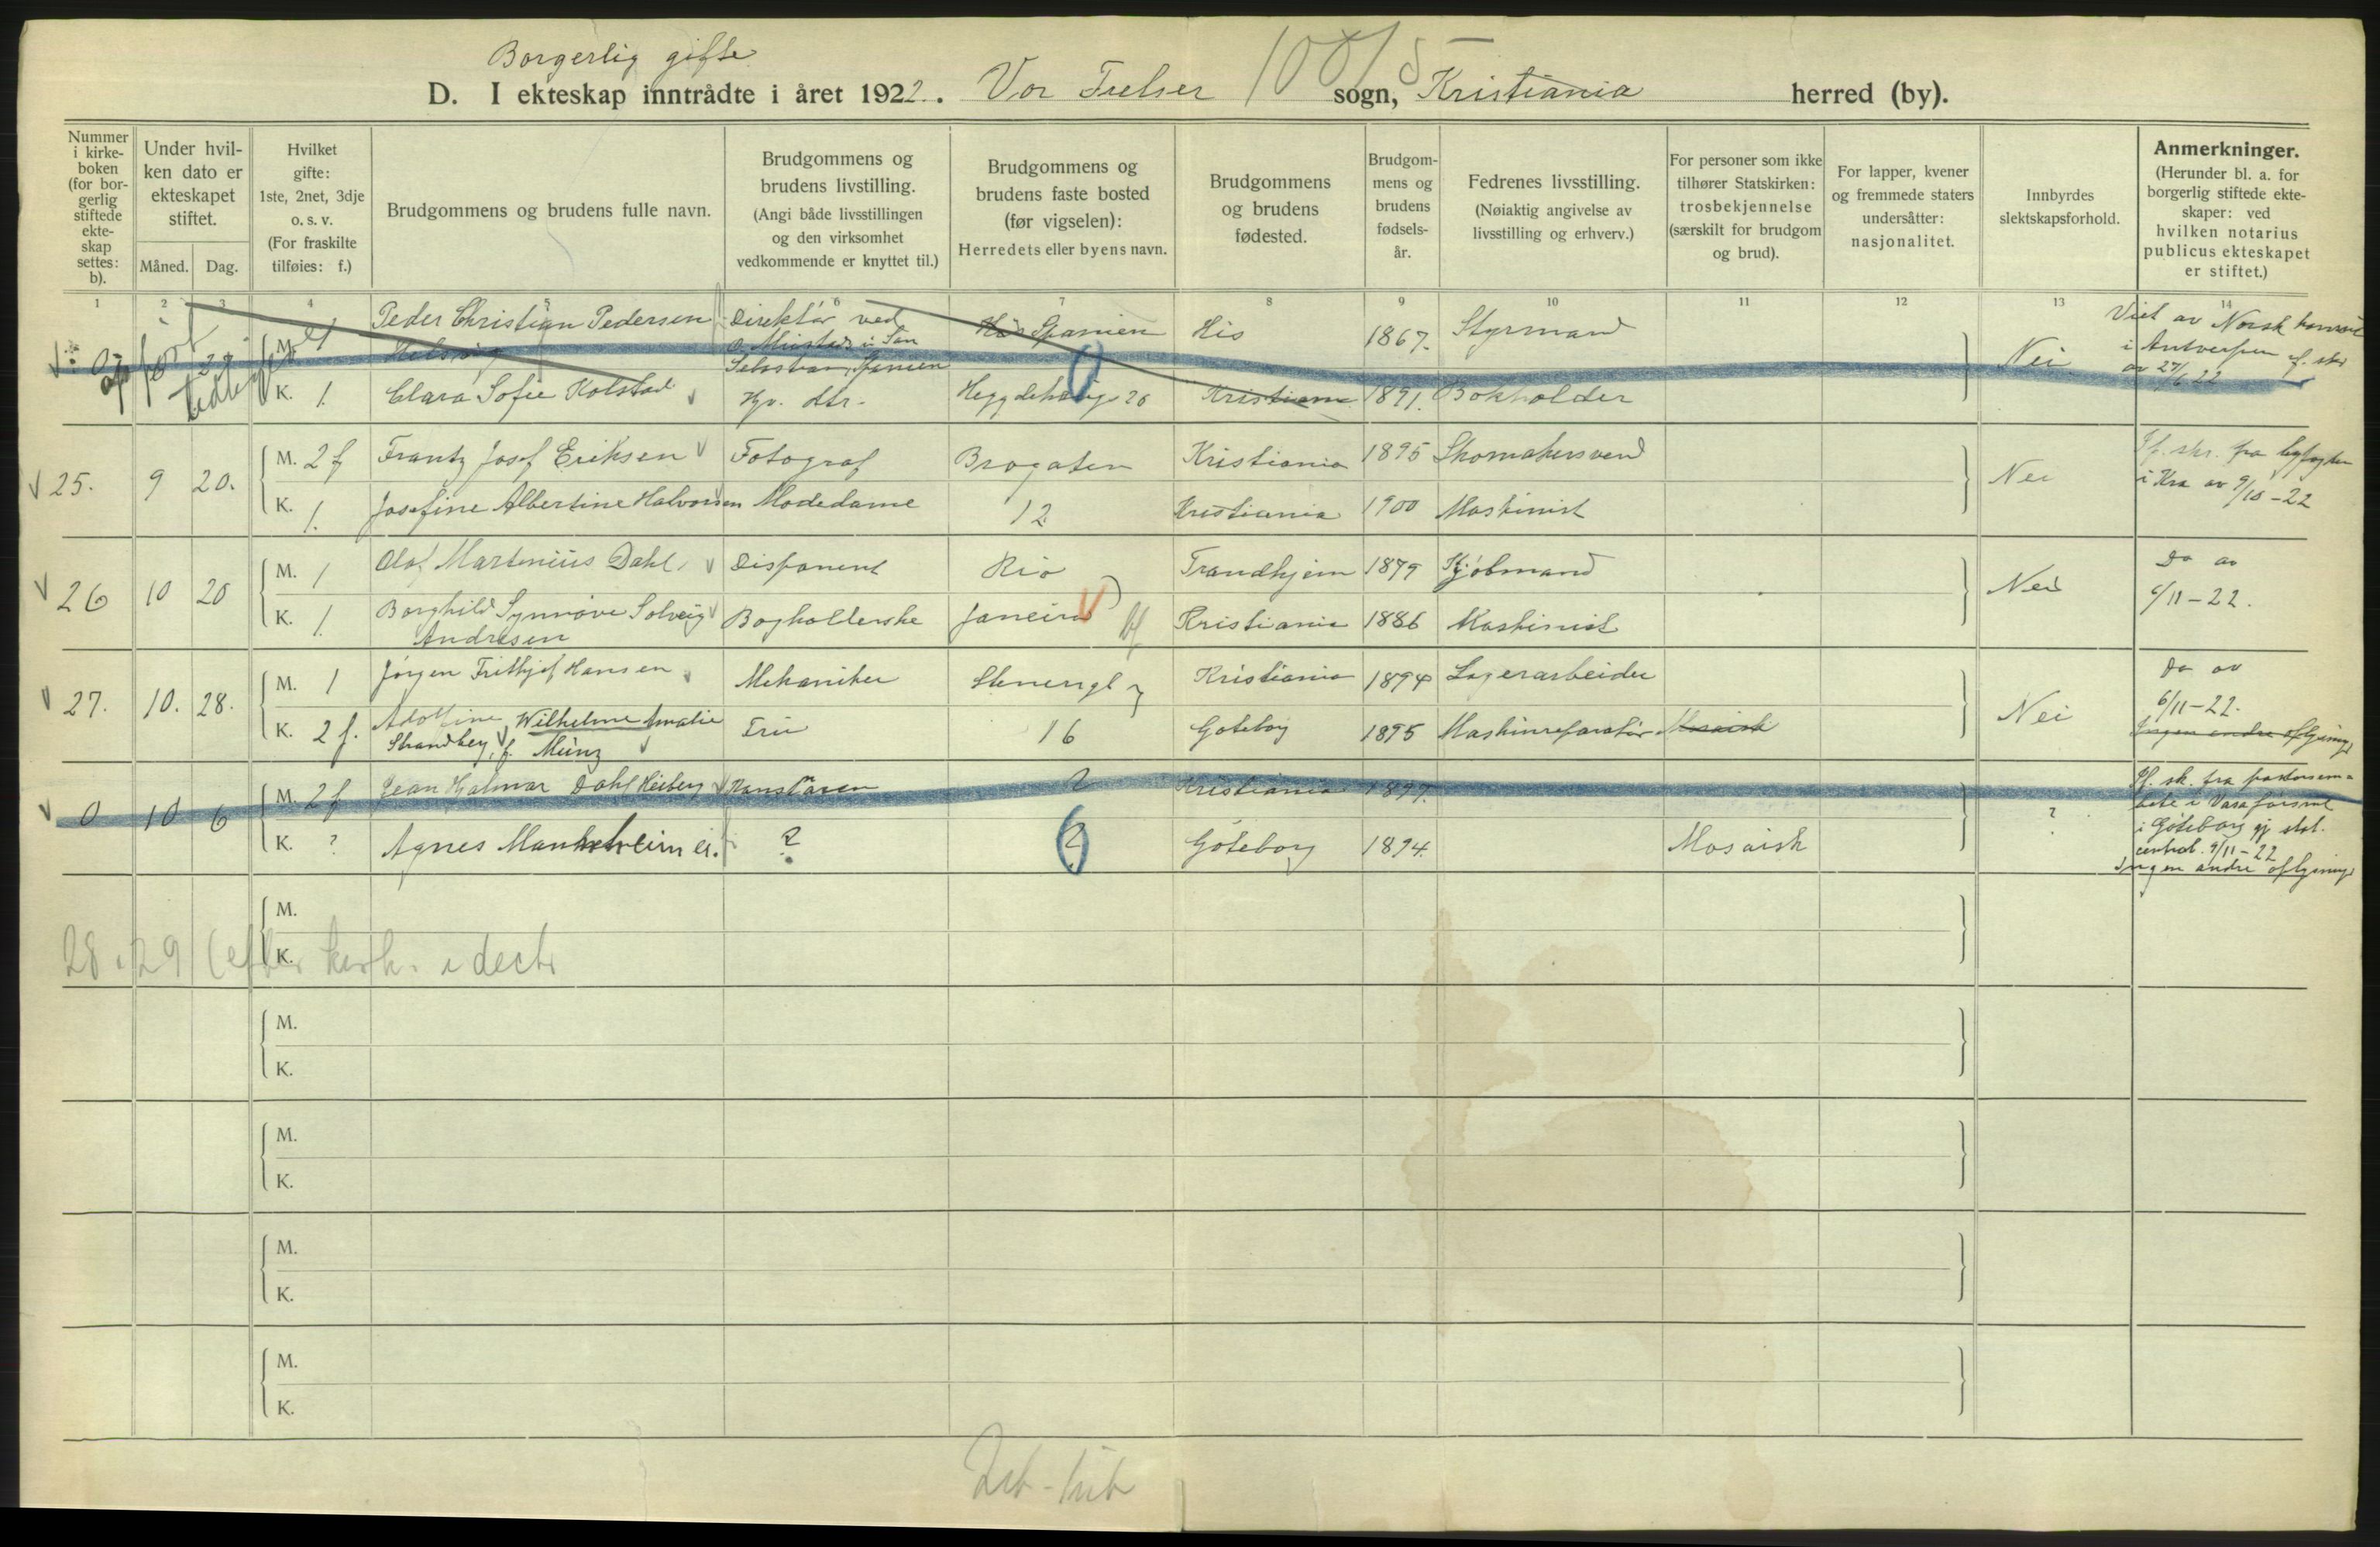 Borgerlig gifte
D. I ekteskap inntrådte i året 1922. Vor Frelser sogn, Kristiania herred (by).
Nummer i kirkeboken (for borgerlig stiftede ekteskap settes: b).
Under hvilken dato er ekteskapet stiftet.
Måned. Dag.
Hvilket gifte: 1ste, 2net, 3dje o. s. v. (For fraskilte tilføies: f.)
Brudgommens og brudens fulle navn.
Brudgommens og brudens livstilling. (Angi både livsstillingen og den virksomhet vedkommende er knyttet til.)
Brudgommens og brudens faste bosted (før vigselen): Herredets eller byens navn.
Brudgommens og brudens fødested.
Brudgommens og brudens fødselsår.
Fedrenes livsstilling. (Nøiaktig angivelse av livsstilling og erhverv.)
For personer som ikke tilhører Statskirken: trosbekjennelse (særskilt for brudgom og brud).
For lapper, kvener og fremmede staters undersåtter: nasjonalitet.
Innbyrdes slektskapsforhold.
Anmerkninger. (Herunder bl. a. for borgerlig stiftede ekteskaper: ved hvilken notarius publicus ekteskapet er stiftet.)
1 2 3 4 5 6 7 8 9 10 11 12 13 14
M. Peder Christian Pedersen Direktør ved Spanien His 1867. Styrmand
Nei
Viet av Norsk konsul
i Antwerpen
av 27/6 22
K. 1. Clara Sofie Kolstad Hegdehaugs 26 Kristiania 1891. Bokholder
25. 9 20.
M. 2 f Frantz Josef Eriksen Fotograf Brogaten Kristiania 1895 Skomakersvend
Nei
i Kra av 9/10-22
K. 1. Josefine Albertine Halvorsen Modedame 12 Kristiania 1900 Maskinist
26 10 20
M. 1 Olaf Martinius Dahl Disponent Rio Trondhjem 1879 Kjøbmand
Nei
Do av
6/11-22.
K. 1. Borghild Synnøve Solveig Andresen Bogholderske Janeiro Kristiania 1886 Maskinist
27. 10. 28.
M. 1 Jørgen Frithjof Hansen Mekaniker Stenersgt Kristiania 1894 Lagerarbeider
Nei
Do av
6/11-22.
Ingen andre oplysninger
K. 2 f. Adolfine Wilhelmine Amalie Strandberg, f. Münz Fru 16 Gøteborg 1895 Maskinreparatør Mosaisk
0 10 6
M. 2 f Jean Hjalmar Dahl Heiberg ? Kristiania 1897.
?
i Göteborg
9/11-22
Ingen andre oplysninger
K. ? Agnes Mannheimer ? ? Göteborg 1894. Mosaisk
M.
K.
28 29
M.
K.
M.
K.
M.
K.
M.
K.